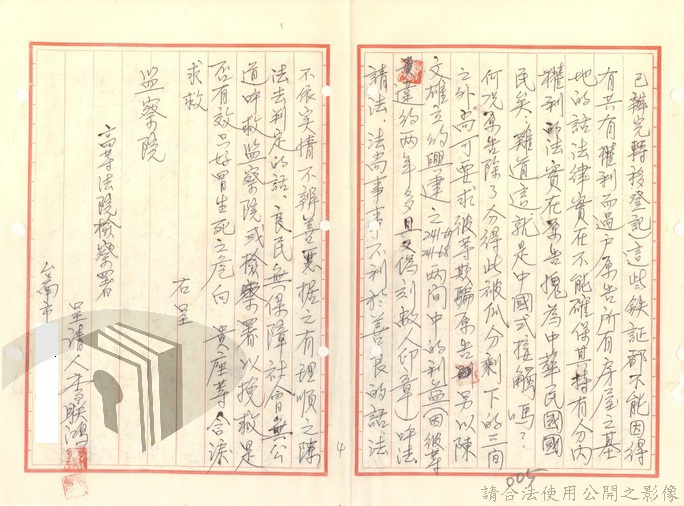 已辦完轉移登記這些鉄証都不能因得
有共有權利而過户原告所有房屋之基
地的話法律實在不能確保其持有分內
權利的法實在原告愧為中華民國國
民矣、難道這就是中國式接觸嗎?
何況原告除了分得此被瓜分剩下的三間
之外尚可要求彼等欺騙原告另以陳
文雄立的興建之241-67 241-68兩間中的利益(因彼等
違約两年多且又偽刻故人印章)呼法
請法、法尚事事不利於善良的話法
不依實情不辨善惡據之有理順之陳
法去判定的話、良民無保障社會無公
道呼救监察院或檢察署以挽救是
否有效只好冒生死之危向 貴座等含淚
求救
右呈
监察院
高等法院檢察署
台南市
呈請人 李聯鴻
4
005
請合法使用公開之影像